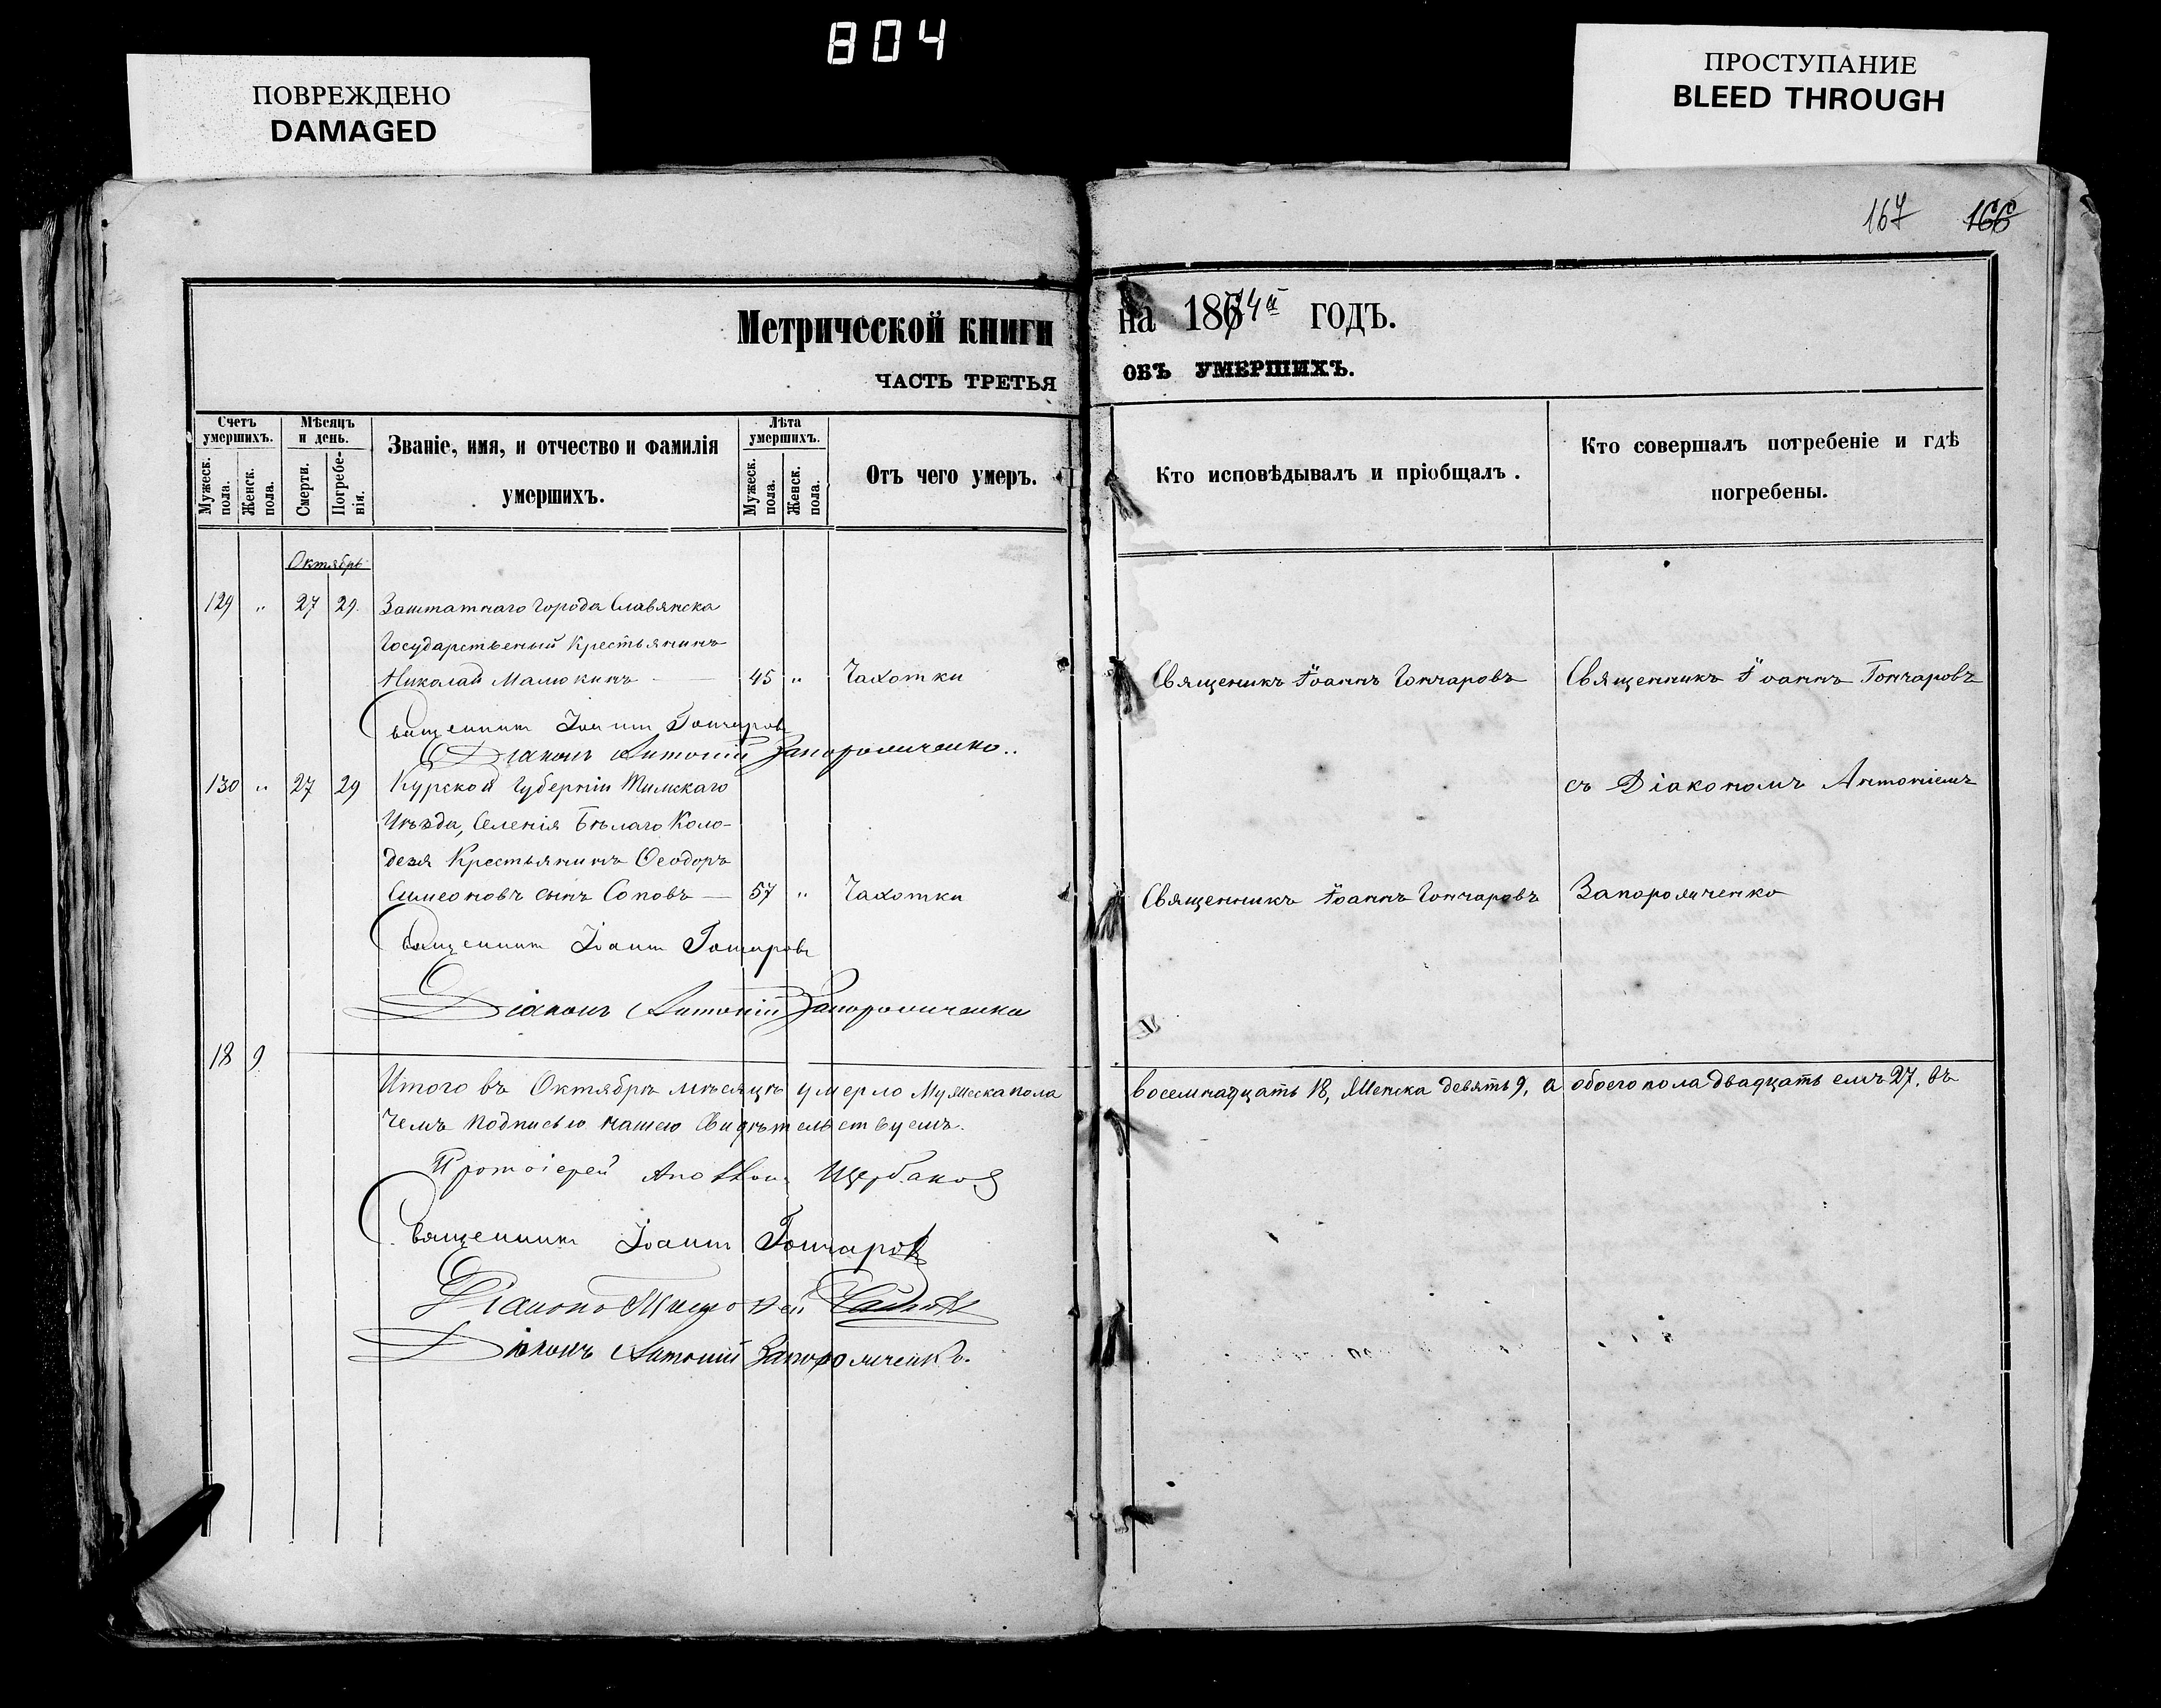 804
ПОВРЕЖДЕНО
DAMAGED
ПРОСТУПАНИЕ
BLEED THROUGH
167 166
Метрической книги на 1874й годъ.
ЧАСТЬ ТРЕТЬЯ ОБЪ УМЕРШИХЪ.
Счетъ умершихъ.
Мужеск. пола.
Женск. пола.
Мѣсяцъ и день.
Смерти.
Погребенія.
Званіе, имя, и отчество и фамилія
умершихъ.
Лѣта умершихъ.
Мужеск. пола.
Женск. пола.
Отъ чего умеръ.
Кто исповѣдывалъ и пріобщалъ.
Кто совершалъ погребеніе и гдѣ
погребены.
Октябрь
129 " 27 29. Заштатнаго города Славянска
Государственый Крестьянинъ
Николай Малюкинъ — 45 " Чахотки Священикъ Іоаннъ Гончаровъ Священникъ Іоаннъ Гончаровъ
Священникъ Іоаннъ Гончаровъ
Діаконъ Антоній Запорожченко..
130 " 27 29 Курской Губерніи Тимскаго съ Діакономъ Антоніемъ
Уѣзда, Селенія Бѣлаго Коло-
дезя Крестьянинъ Ѳеодоръ
Симеоновъ сынъ Соповъ — 57 " Чахотки Священникъ Іоаннъ Гончаровъ Запорожченко
Священникъ Іоаннъ Гончаровъ
Діаконъ Антоній Запорожченко
18 9
Итого въ Октябрѣ мѣсяцѣ умерло Мужеска пола восемнадцать 18, Женска девять 9, а обоего пола двадцать семь 27, въ
чемъ подписью нашею Свидѣтельствуемъ.
Протоіерей Щербаковъ
Священникъ Іоаннъ Гончаровъ
Діаконъ
Діаконъ Антоній Запорожченко.